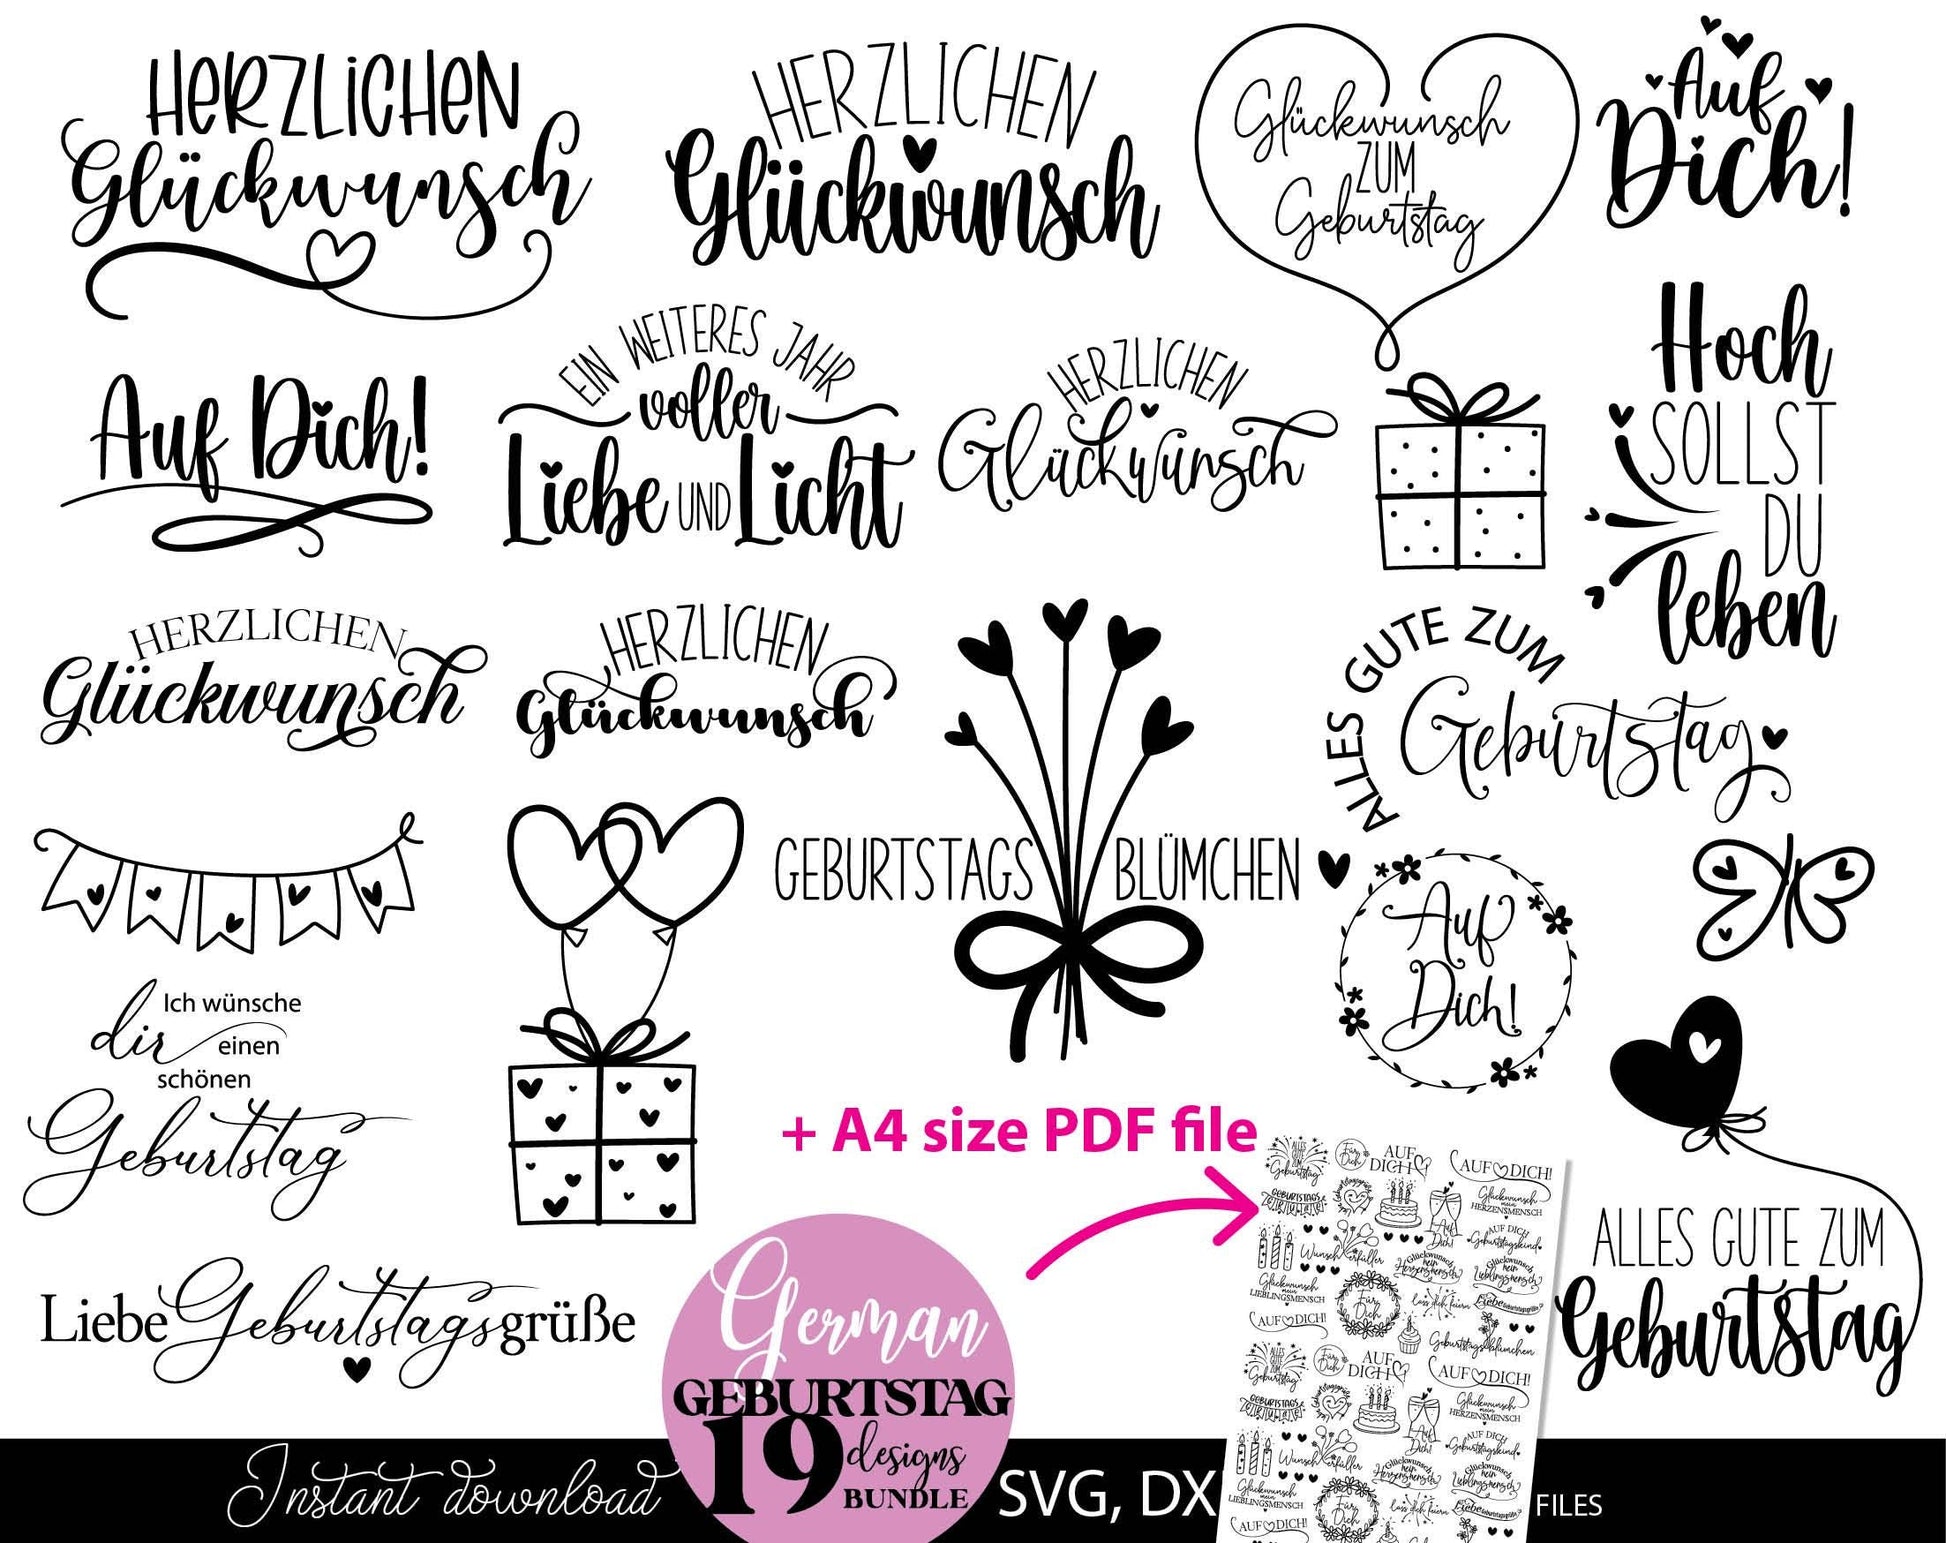 HERZLICHEN
Glückwunsch
HERZLICHEN
Glückwunsch
Glückwunsch
ZUM
Geburtstag
Auf
Dich!
Auf Dich!
EIN WEITERES JAHR
voller
Liebe UND Licht
HERZLICHEN
Glückwunsch
Hoch
SOLLST
DU
leben
HERZLICHEN
Glückwunsch
HERZLICHEN
Glückwunsch
GEBURTSTAGS BLÜMCHEN
ALLES GUTE ZUM
Geburtstag
Auf
Dich!
Ich wünsche
dir einen
schönen
Geburtstag
Liebe Geburtstagsgrüße
ALLES GUTE ZUM
Geburtstag
+ A4 size PDF file
German
GEBURTSTAG
19 designs
BUNDLE
Instant download
SVG, DX
FILES
ALLES
GUTE
ZUM
Geburtstag
Für
Dich
AUF
DICH
AUF DICH!
GEBURTSTAGS
Glückwunsch
mein
HERZENSMENSCH
Auf
Dich!
AUF DICH
Geburtstagskind
Wunscherfüller
Glückwunsch
mein
Herzensmensch
Glückwunsch
mein
Lieblingsmensch
Glückwunsch
mein
LIEBLINGSMENSCH
Für
Dich
lass dich feiern
Liebe Geburtstagsgrüße
AUF DICH!
Geburtstagsblümchen
ALLES
GUTE
ZUM
Geburtstag
Für
Dich
AUF
DICH
AUF DICH!
GEBURTSTAGS
Glückwunsch
mein
HERZENSMENSCH
Auf
Dich!
AUF DICH
Geburtstagskind
Wunscherfüller
Glückwunsch
mein
Herzensmensch
Glückwunsch
mein
Lieblingsmensch
Glückwunsch
mein
LIEBLINGSMENSCH
Für
Dich
lass dich feiern
AUF DICH!